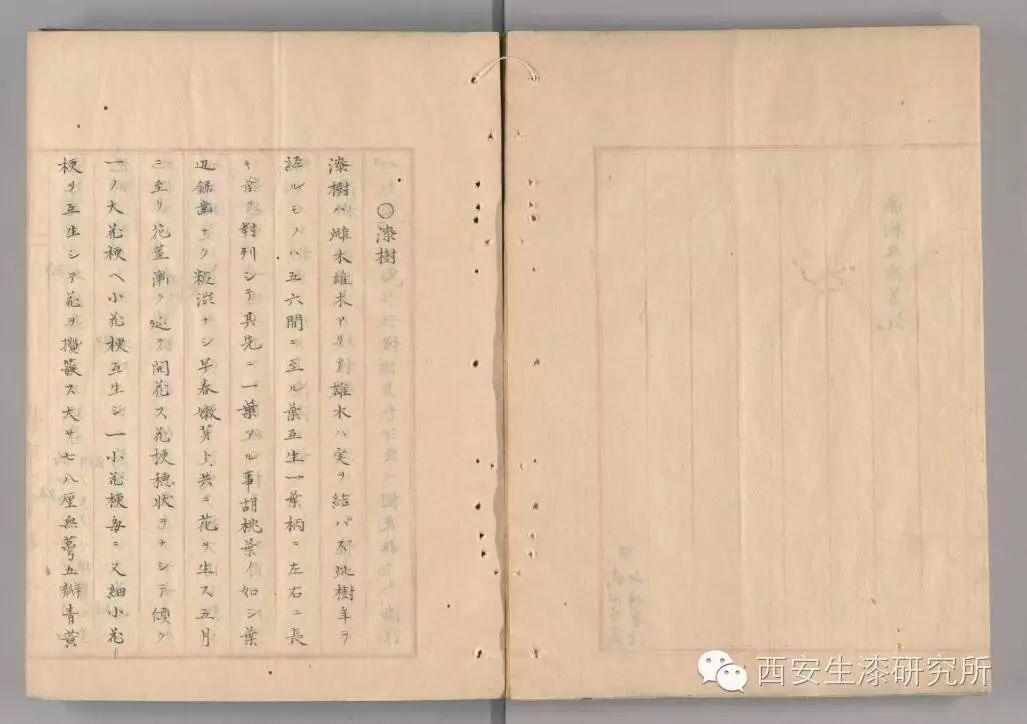 ○漆樹
漆樹ハ雌木雄木アリ雄木ハ実ヲ結バズ此樹年ヲ
経ルモノハ五六間ニ至ル葉互生一葉柄ニ左右ニ長
キ葉対列シテ其先ニ一葉アル事胡桃葉ノ如シ葉
辺鋸歯ナク糙渋ナシ早春嫩芽ト共ニ花ヲ生ス五月
ニ至リ花茎漸ク延テ開花ス花梗穂状ヲナシテ傾ク
一ノ大花梗ヘ小花梗互生シ一小花梗毎ニ又細小花
梗ヲ互生シテ花ヲ攅簇ス大サ七八厘無萼五瓣青黄
西安生漆研究所